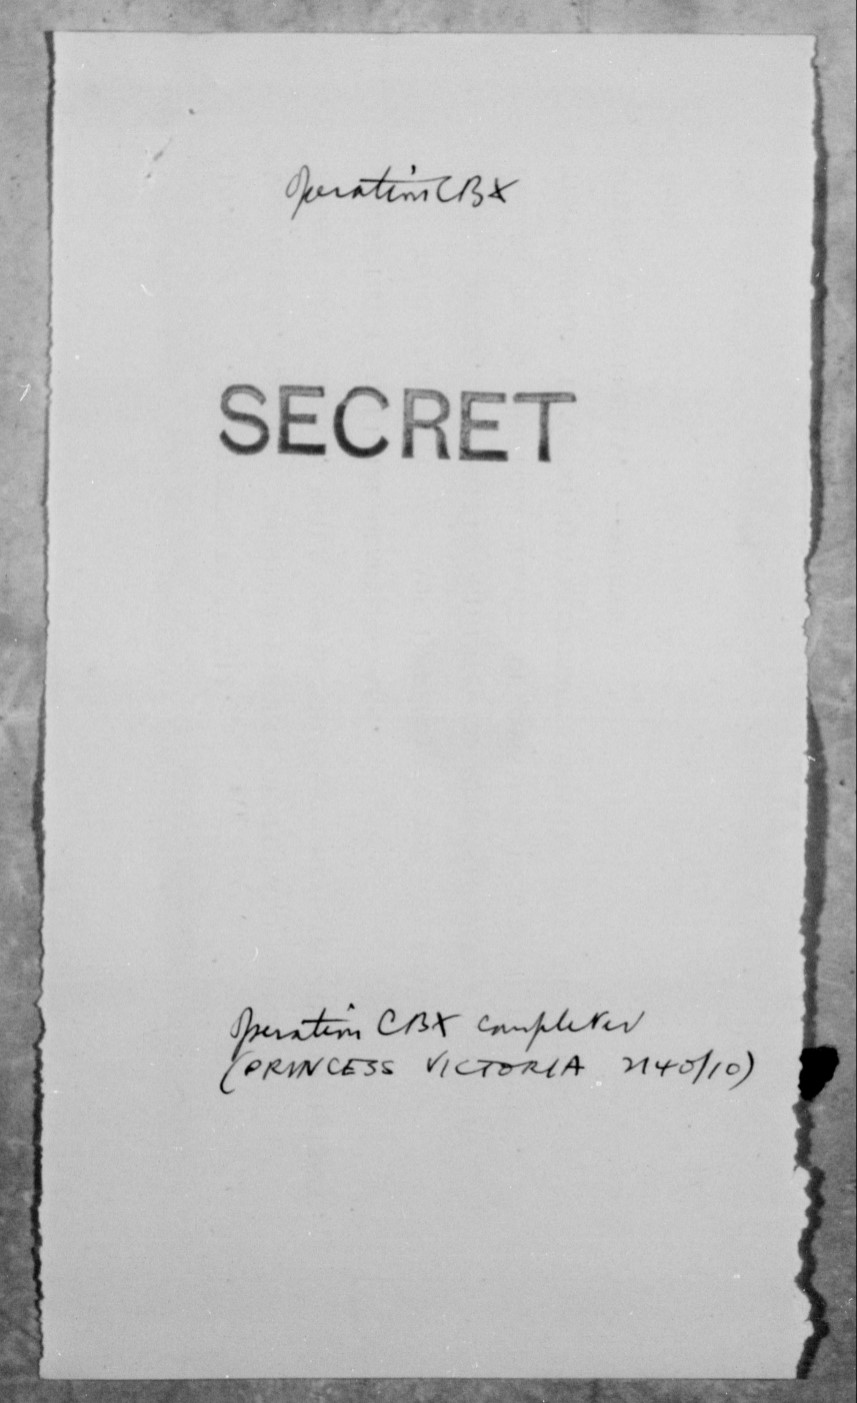 Operation CBX
SECRET
Operation CBX completed
(PRINCESS VICTORIA 2140/10)